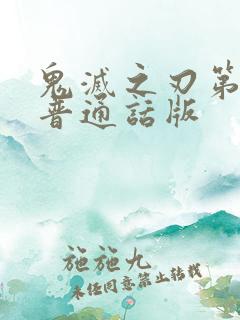 鬼滅之刃第
普通話版
施施九
未经同意禁止转载